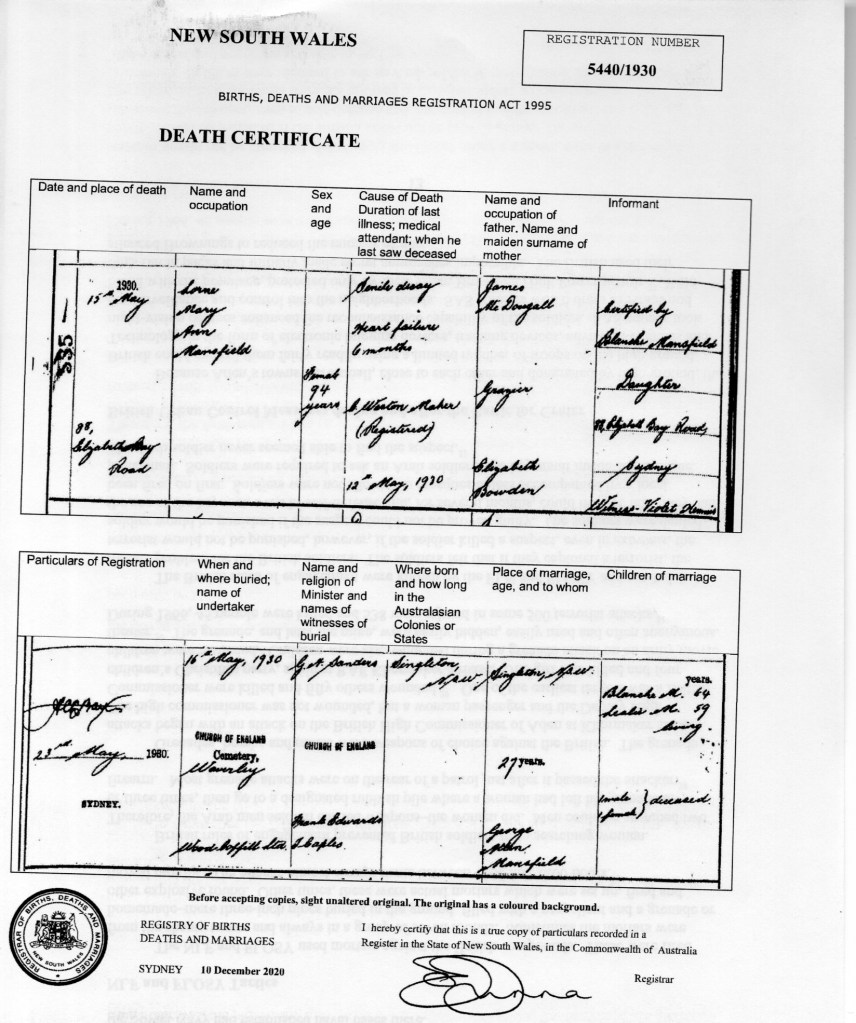 NEW SOUTH WALES
REGISTRATION NUMBER
5440/1930
BIRTHS, DEATHS AND MARRIAGES REGISTRATION ACT 1995
DEATH CERTIFICATE
Date and place of death
Name and
occupation
Sex
and
age
Cause of Death
Duration of last
illness; medical
attendant; when he
last saw deceased
Name and
occupation of
father. Name and
maiden surname of
mother
Informant
535
1930.
15th May
88,
Elizabeth Bay
Road
Lorne
Mary
Ann
Mansfield
Female
94
years
Senile decay
Heart failure
6 months
C Weston Maher
(Registered)
12th May, 1930
James
McDougall
Grazier
Elizabeth
Bowden
Certified by
Blanche Mansfield
Daughter
Elizabeth Bay Road,
Sydney
Witness - Violet
Particulars of Registration
When and
where buried;
name of
undertaker
Name and
religion of
Minister and
names of
witnesses of
burial
Where born
and how long
in the
Australasian
Colonies or
States
Place of marriage,
age, and to whom
Children of marriage
23rd May, 1930.
SYDNEY.
16th May, 1930
CHURCH OF ENGLAND
Cemetery,
Waverley
Wood Coffill Ltd.
G. N. Sanders
CHURCH OF ENGLAND
Frank Edwards
T. Caples.
Singleton,
N.S.W.
Singleton, N.S.W.
27 years.
George
Mansfield
years.
Blanche M. 64
Leslie M. 59
living
deceased.
Before accepting copies, sight unaltered original. The original has a coloured background.
REGISTRAR OF BIRTHS, DEATHS AND MARRIAGES
NEW SOUTH WALES
REGISTRY OF BIRTHS
DEATHS AND MARRIAGES
SYDNEY 10 December 2020
I hereby certify that this is a true copy of particulars recorded in a
Register in the State of New South Wales, in the Commonwealth of Australia
Registrar